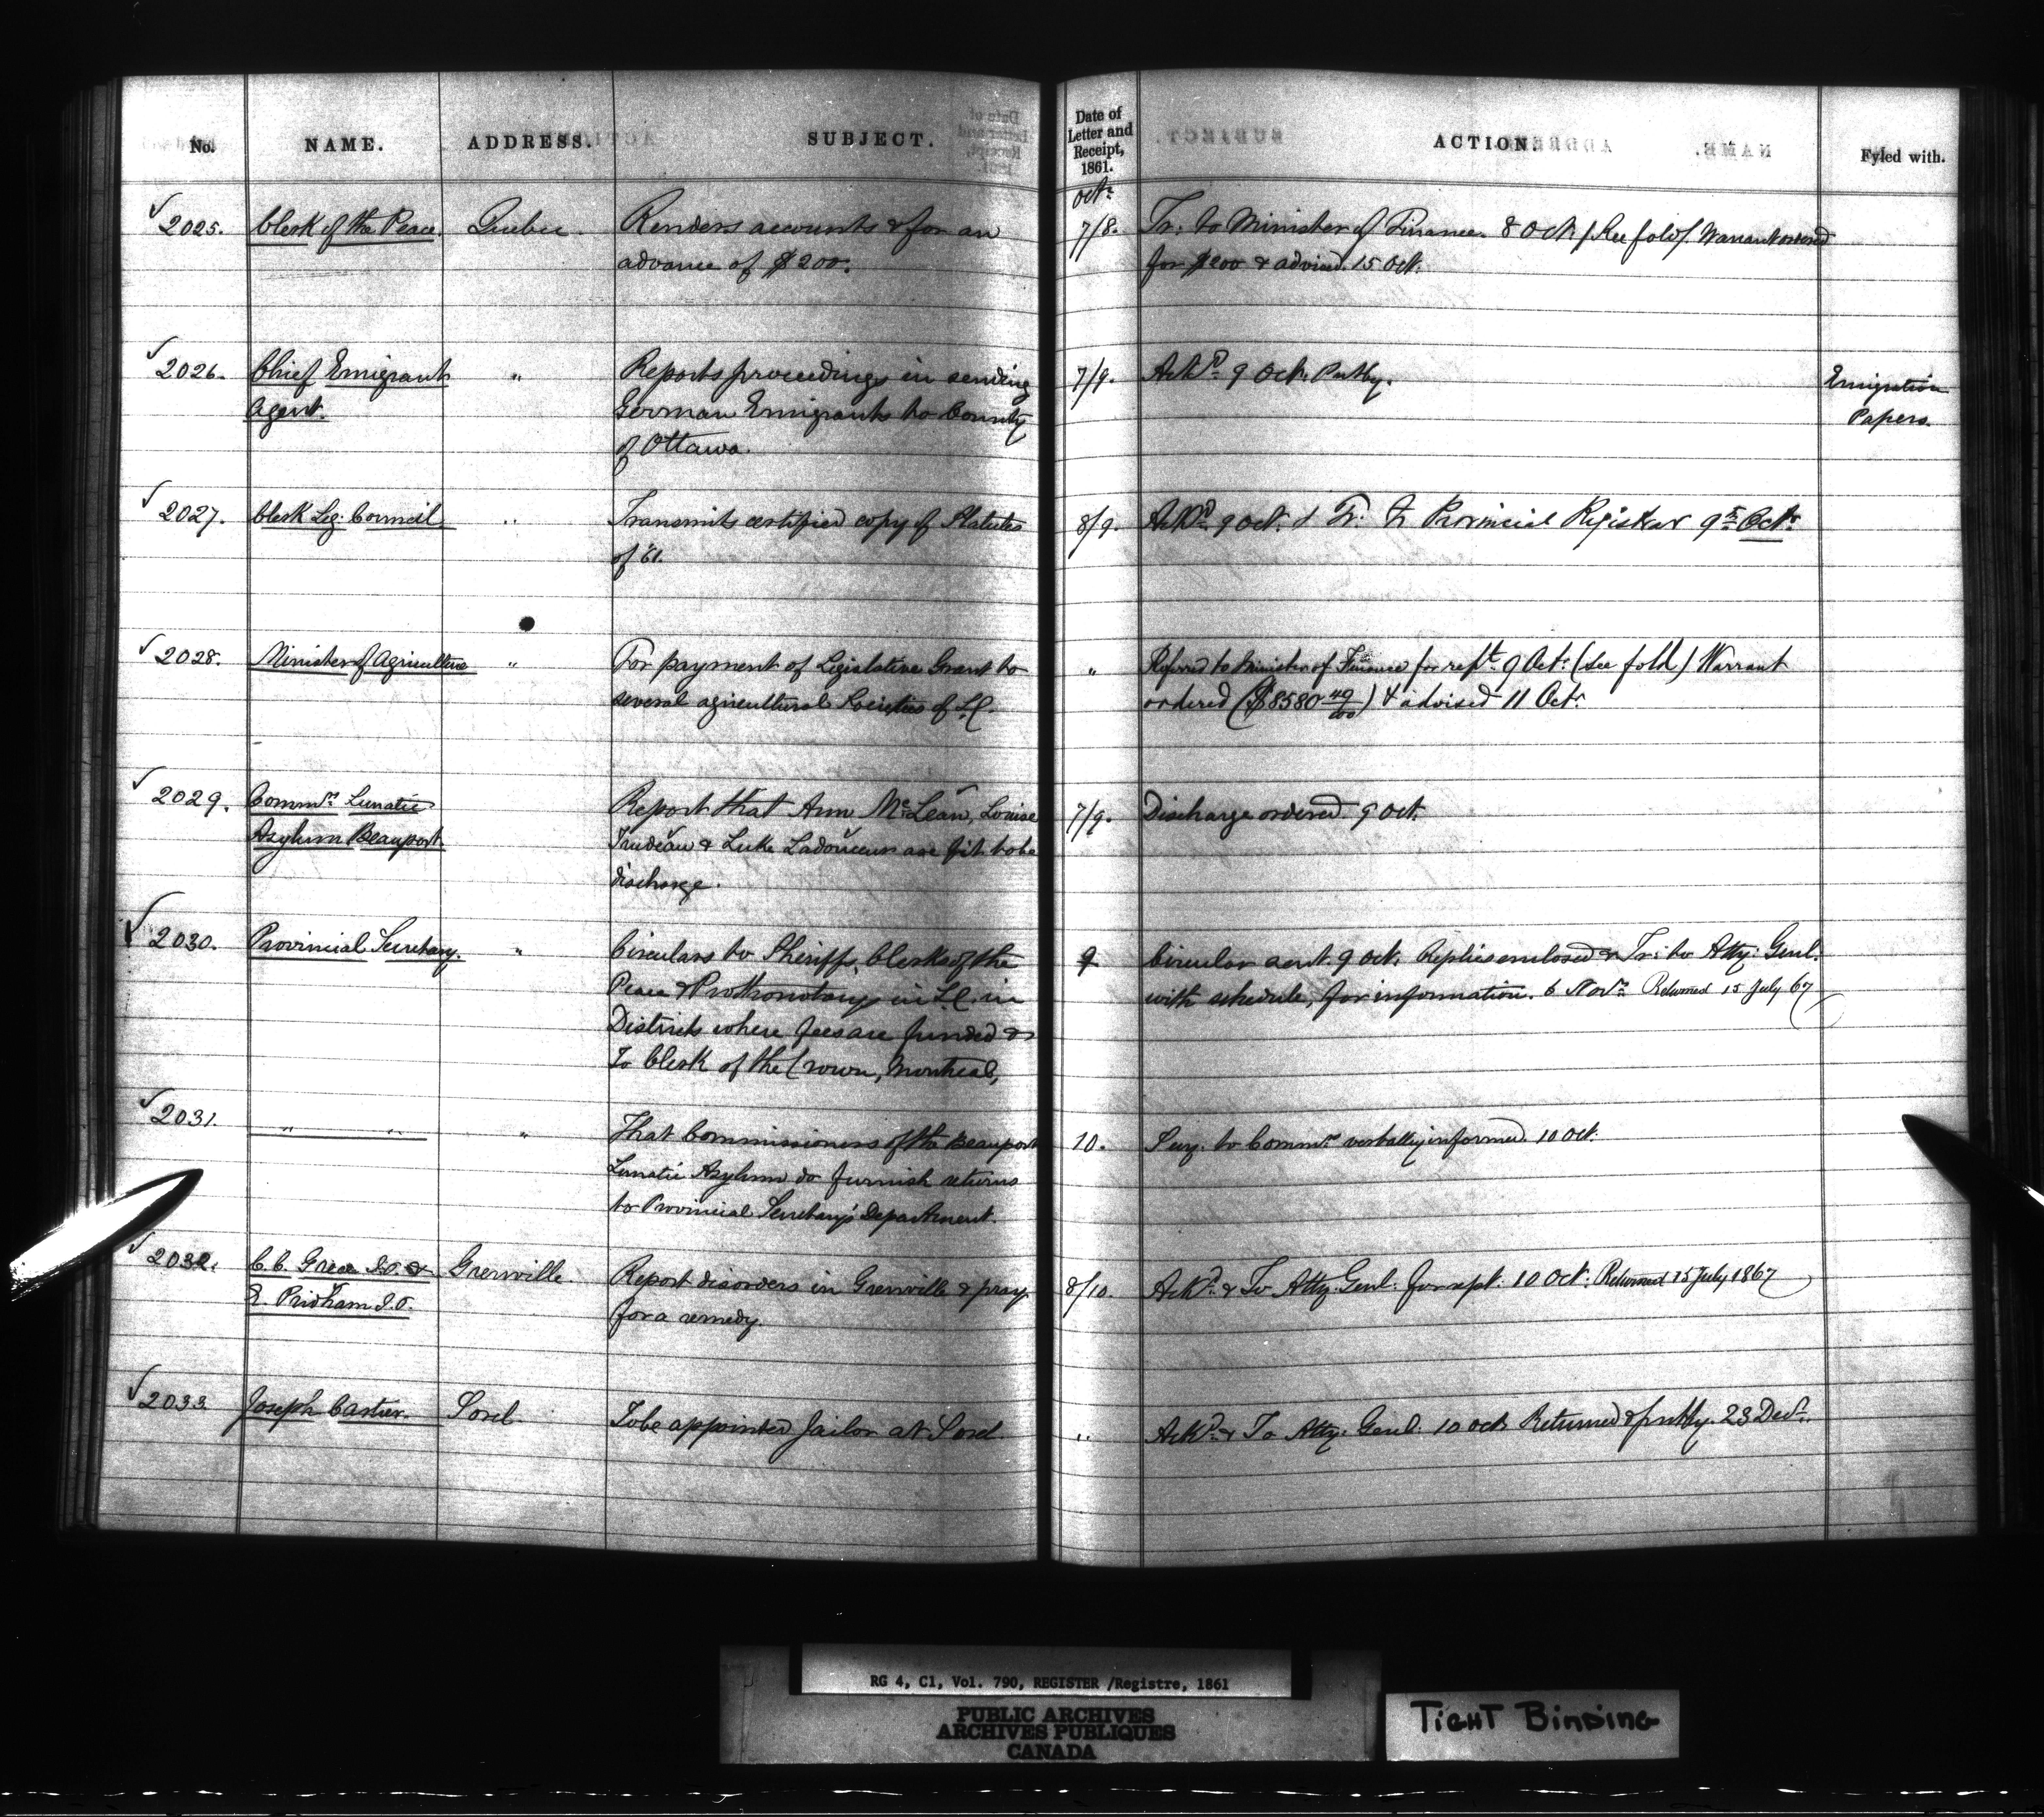 No. NAME. ADDRESS. SUBJECT. Date of Letter and Receipt, 1861. ACTION. Fyled with.
Octr
2025. Clerk of the Peace. Quebec. Renders accounts & for an 7/8. Tr: to Minister of Finance. 8 Oct. (See fold). Warrant ordered
advance of $200. for $200 & advised. 15 Oct.
2026. Chief Emigrant " Reports proceedings in sending 7/9. Ackd 9 Oct. Put by. Emigration
Agent. German Emigrants to County Papers.
of Ottawa.
2027. Clerk Leg: Council " Transmits certified copy of Statutes 8/9. Ackd 9 Oct. & Tr. to Provincial Registrar 9th Octr
of '61.
2028. Minister of Agriculture " For payment of Legislative Grant to " Referred to Minister of Finance for rept. 9 Oct: (See fold) Warrant
several agricultural Societies of L.C. ordered ($8580 49/100) & advised 11 Octr
2029. Commrs Lunatic Report that Ann McLean, Louise 7/9. Discharge ordered. 9 Oct.
Asylum Beauport. Trudeau & Luke Ladouceur are fit to be
discharge.
2030. Provincial Secretary. " Circulars to Sheriffs, Clerks of the 9 Circular sent. 9 Oct. Replies enclosed & Tr: to Atty: Genl.
Peace & Prothonotarys in L.C. in with schedule, for information. 6 Novr Returned 15 July 67
Districts where fees are funded &
To Clerk of the Crown, Montreal,
2031. " " " That Commissioners of the Beauport 10. Secy. to Commrs verbally informed. 10 Oct.
Lunatic Asylum do furnish returns
to Provincial Secretary's Department.
2032. C. C. Grece J.P. & Grenville. Report disorders in Grenville & pray 8/10. Ackd & To Atty. Genl. for rept. 10 Oct. Returned 15 July 1867
E. Pridham J.P. for a remedy.
2033. Joseph Cartier. Sorel. To be appointed Jailor at Sorel " Ackd & To Atty. Genl. 10 Oct. Returned & put by. 23 Decr.
RG 4, C1, Vol. 790, REGISTER /Registre, 1861
PUBLIC ARCHIVES
ARCHIVES PUBLIQUES
CANADA
TIGHT BINDING